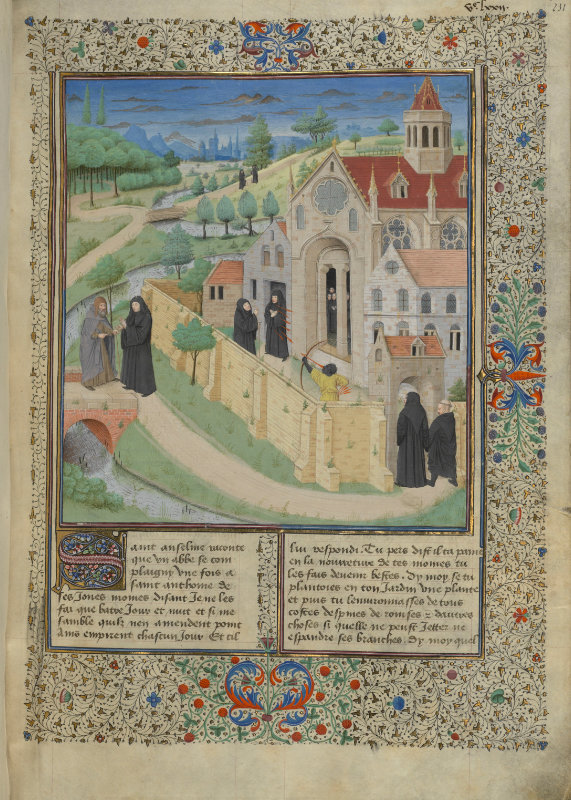 231
Saint anselme raconte
que vn abbe se com
plaigny vne fois a
saint anthome de
ses Jones moines disant Je ne les
fai que batre Jour et nuit et si me
samble quilz nen amendent point
Ains empirent chascun Jour Et cil
lui respondi. Tu pers dist il ta paine
en la nourreture de tes moines tu
les fais deuenir bestes. Dy moy se tu
plantoies en ton Jardin vne plante
et puis tu lenuironnasses de tous
costes despines de ronses & dautres
choses si quelle ne peust Jetter ne
espandre ses branches. Dy moy quel